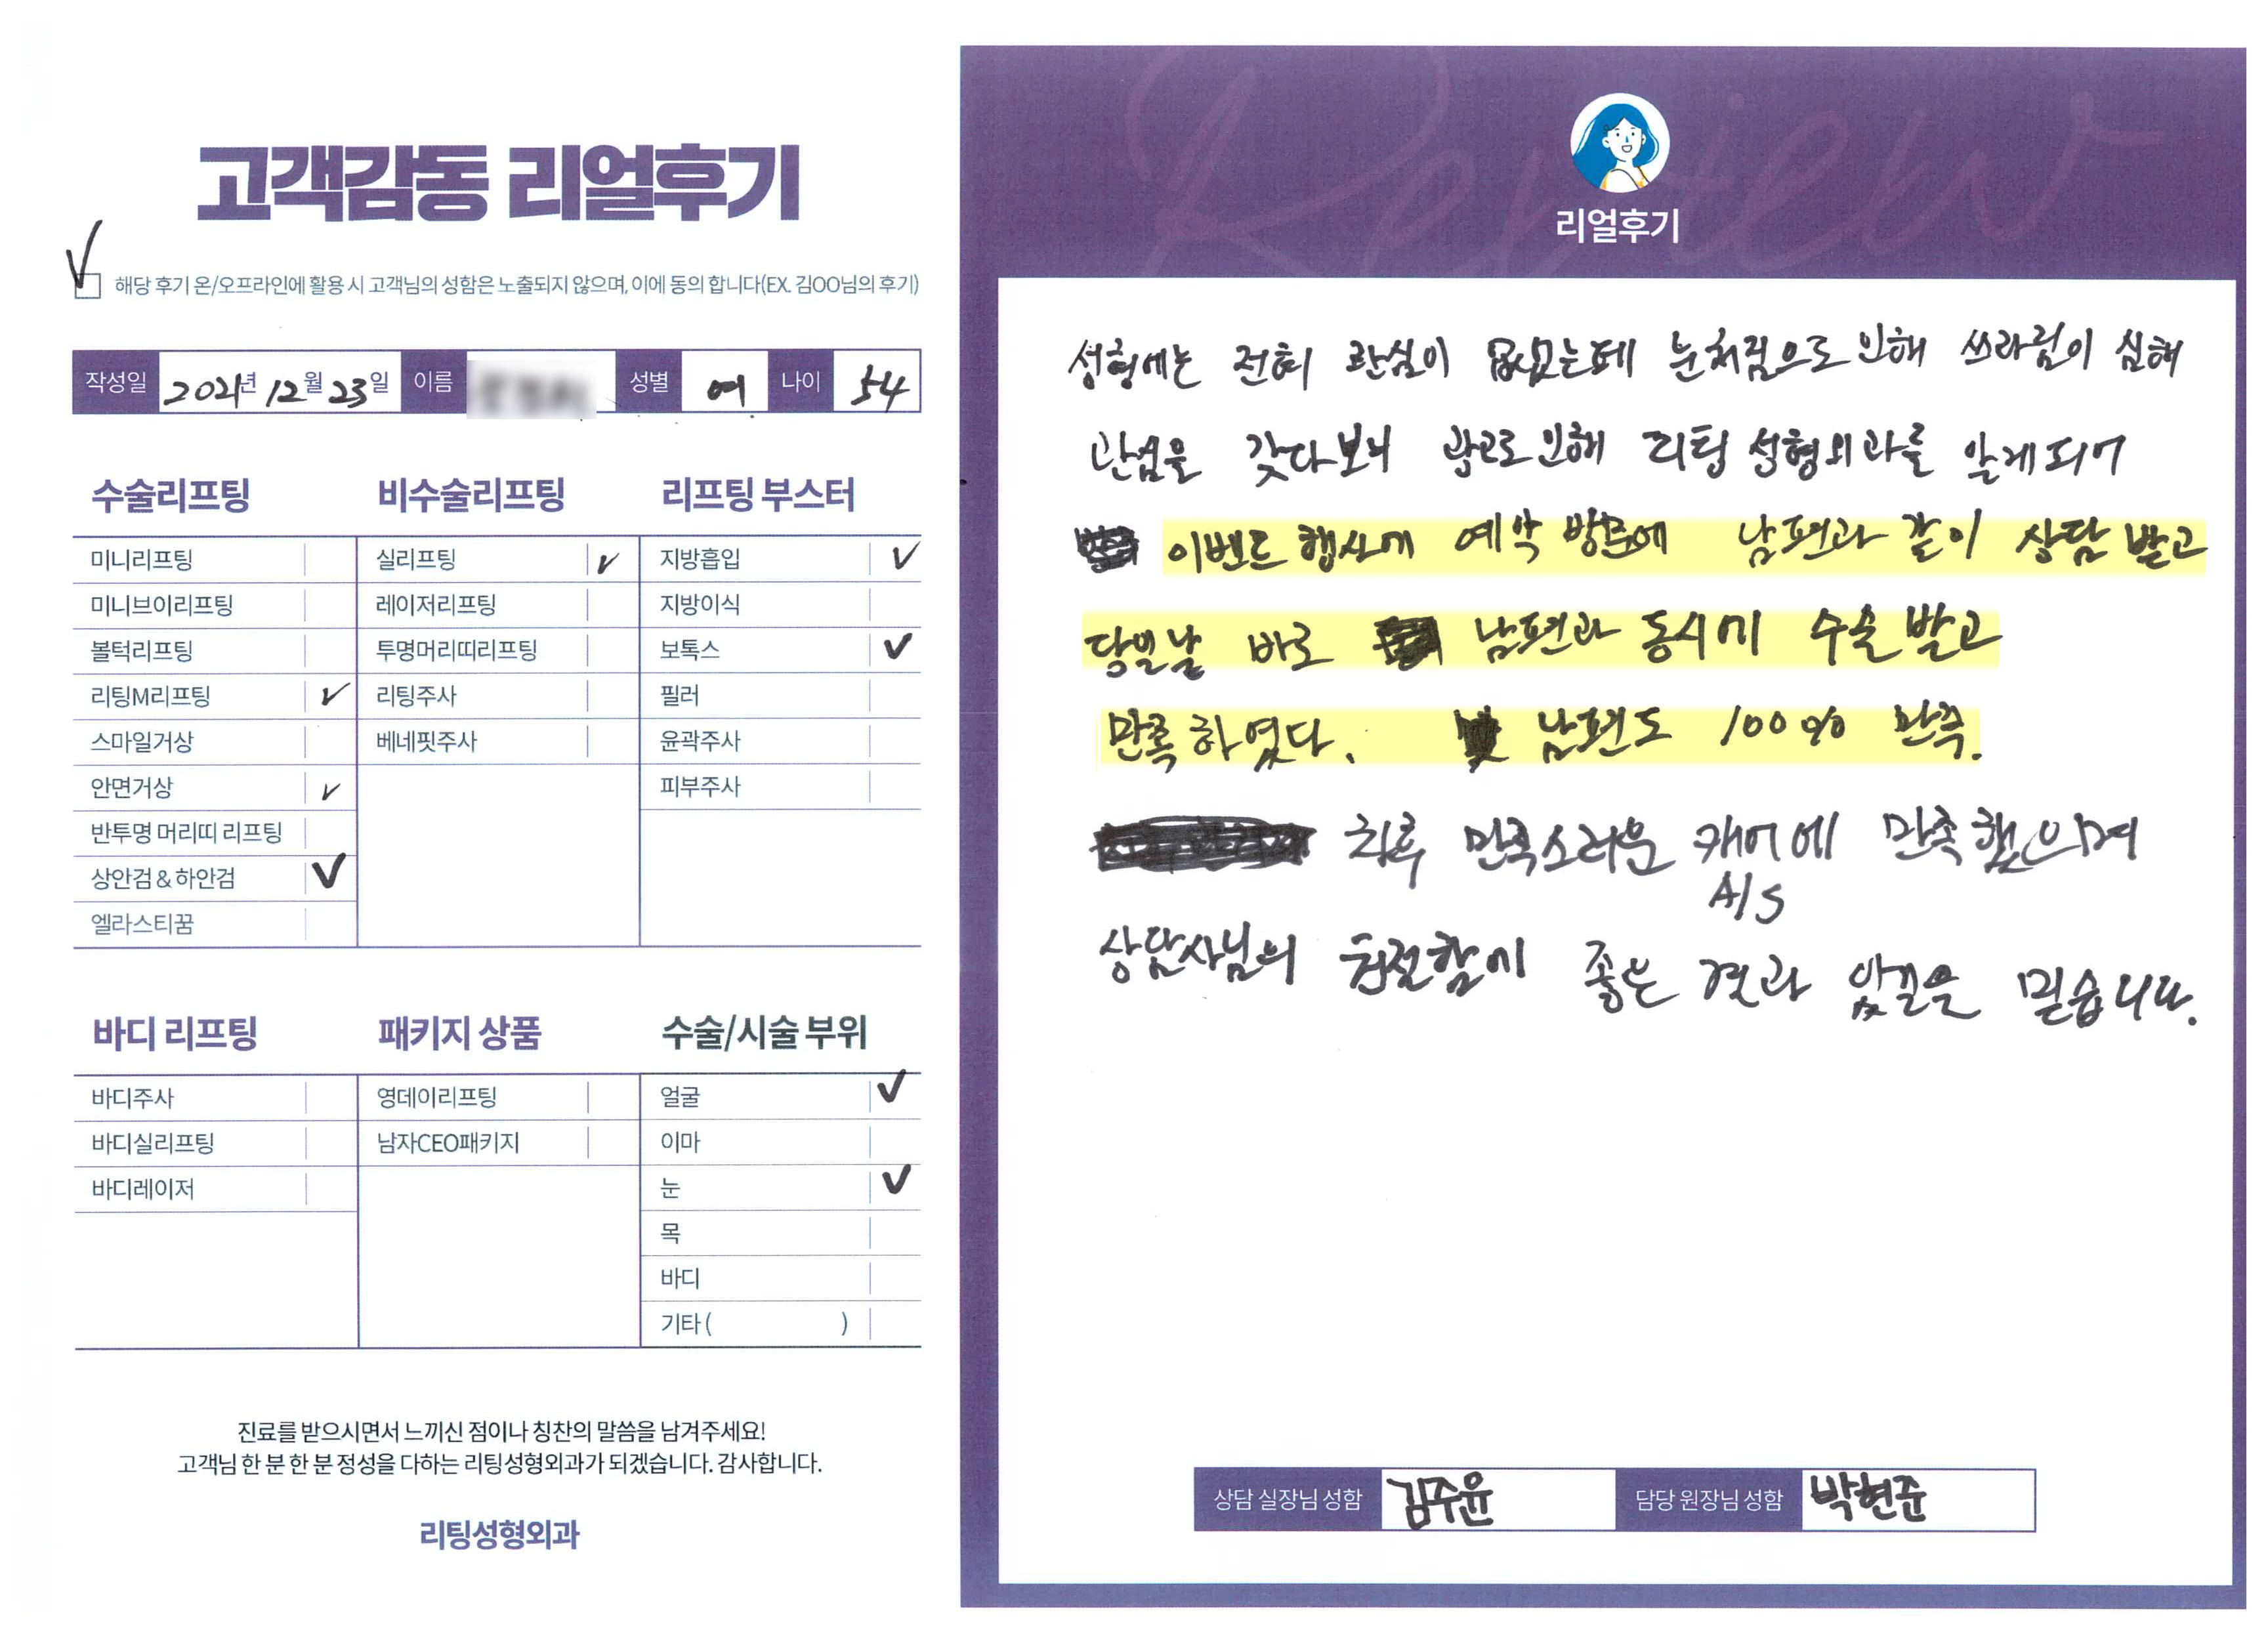 고객감동 리얼후기
해당 후기 온/오프라인에 활용 시 고객님의 성함은 노출되지 않으며, 이에 동의 합니다(EX. 김OO님의 후기)
작성일 2021년 12월 23일 이름 성별 여 나이 54
수술리프팅
미니리프팅
미니브이리프팅
볼턱리프팅
리팅M리프팅 ✓
스마일거상
안면거상 ✓
반투명 머리띠 리프팅
상안검 & 하안검 ✓
엘라스티꿈
비수술리프팅
실리프팅 ✓
레이저리프팅
투명머리띠리프팅
리팅주사
베네핏주사
리프팅 부스터
지방흡입 ✓
지방이식
보톡스 ✓
필러
윤곽주사
피부주사
바디 리프팅
바디주사
바디실리프팅
바디레이저
패키지 상품
영데이리프팅
남자CEO패키지
수술/시술 부위
얼굴 ✓
이마
눈 ✓
목
바디
기타 ( )
진료를 받으시면서 느끼신 점이나 칭찬의 말씀을 남겨주세요!
고객님 한 분 한 분 정성을 다하는 리팅성형외과가 되겠습니다. 감사합니다.
리팅성형외과
Review
리얼후기
성형에는 전혀 관심이 없었는데 눈처짐으로 인해 쓰라림이 심해
관심을 갖다보니 광고로 인해 리팅 성형외과를 알게되어
이벤트 행사에 예약 방문에 남편과 같이 상담 받고
당일날 바로 남편과 동시에 수술 받고
만족하였다. 남편도 100% 만족.
차후 만족스러운 케어에 만족했으며
A/S
상담사님의 친절함에 좋은 결과 있길을 믿습니다.
상담 실장님 성함 김주윤 담당 원장님 성함 박현준